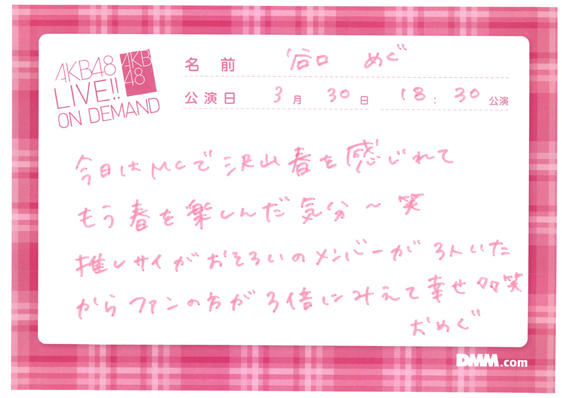 AKB48
LIVE!!
ON DEMAND
AKB
48
名前 谷口 めぐ
公演日 3月30日 18:30公演
今日はMCで沢山春を感じれて
もう春を楽しんだ気分〜笑
推しサイがおそろいのメンバーが3人いた
からファンの方が3倍にみえて幸せ多笑
おめぐ
DMM.com